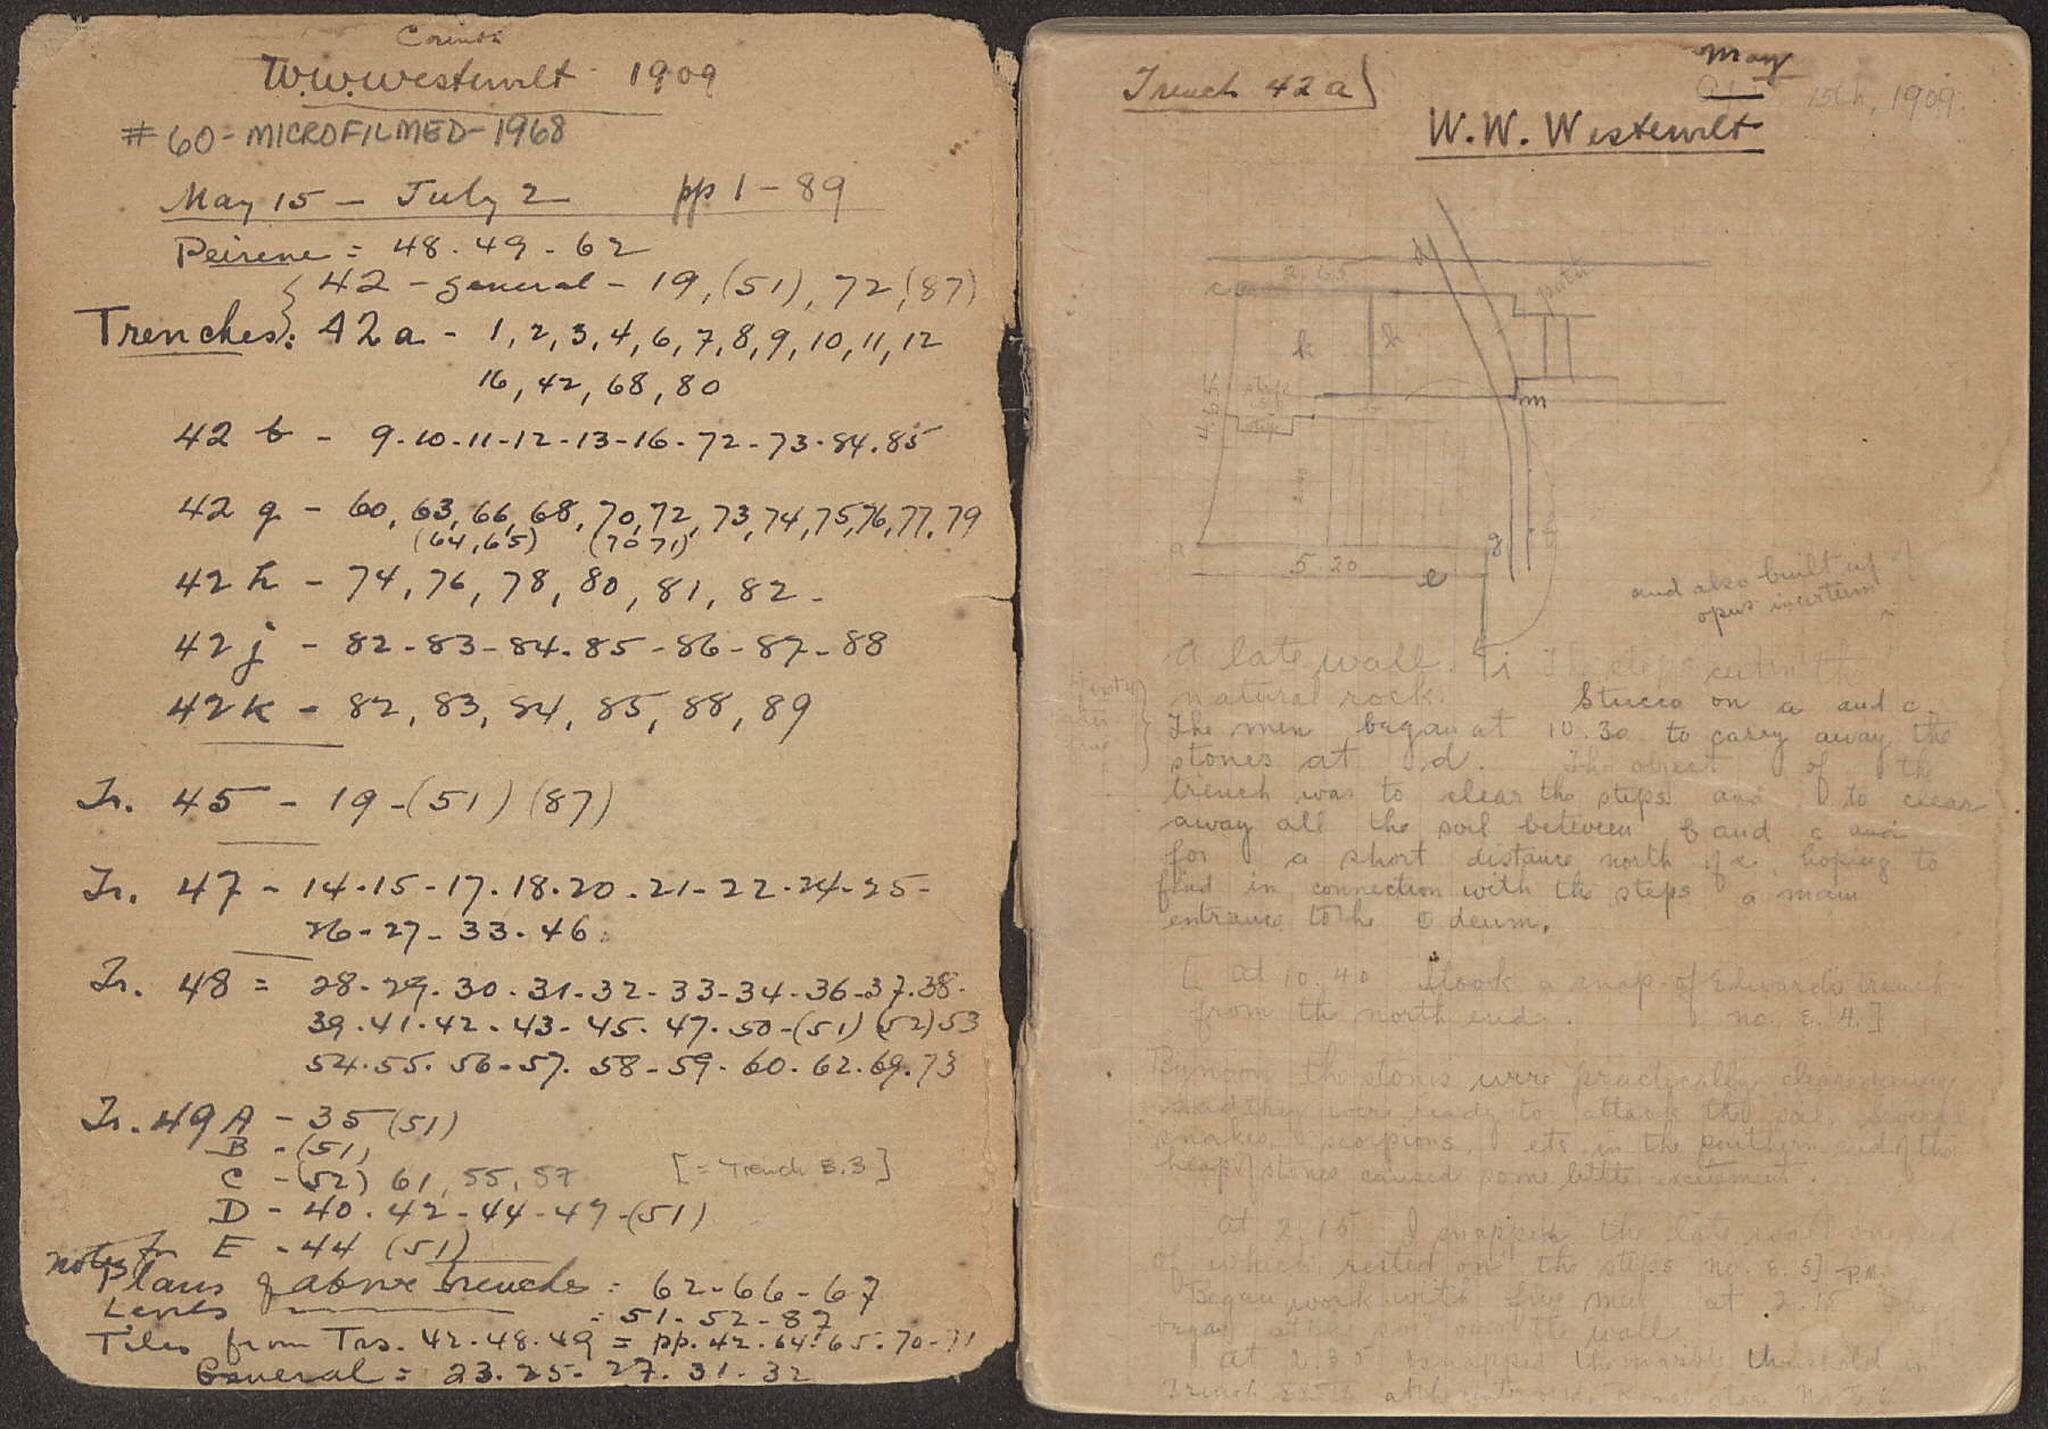 Corinth
W.W. Westervelt 1909
#60-MICROFILMED-1968
May 15 - July 2 pp 1-89
Peirene = 48.49-62
42 - general - 19, (51), 72, (87)
Trenches: 42a - 1, 2, 3, 4, 6, 7, 8, 9, 10, 11, 12
16, 42, 68, 80
42 b - 9-10-11-12-13-16-72-73.84.85
42 g - 60, 63, 66, 68, 70, 72, 73, 74, 75, 76, 77, 79
(64,65) (70 71)
42 h - 74, 76, 78, 80, 81, 82 -
42 j - 82-83-84-85-86-87-88
42 k - 82, 83, 84, 85, 88, 89
Tr. 45 - 19 - (51) (87)
Tr. 47 - 14.15-17.18.20.21-22.24-25-
26-27-33.46
Tr. 48 = 28-29.30.31-32-33-34-36-37.38.
39.41.42-43-45.47.50-(51) (52) 53
54.55.56-57.58-59.60.62.69.73
Tr. 49 A - 35 (51)
B - (51)
C - (52) 61, 55, 57 [= Trench E.3]
D - 40.42-44-47-(51)
E - 44 (51)
notes for
Plans of above trenches = 62-66-67
Levels = 51-52-87
Tiles from Trs. 42.48.49 = pp. 42.64.65.70-71
General = 23.25-27.31-32
Trench 42a
May
15th, 1909.
W. W. Westervelt
d
c 2.65
k h
4.65
step
step
m
a g
5.20 e
and also built up of
opus incertum
A late wall. i The steps cut in the
natural rock. Stucco on a and c.
The men began at 10.30 to carry away the
stones at d. The object of the
trench was to clear the steps and to clear
away all the soil between b and c and
for a short distance north of c, hoping to
find in connection with the steps a main
entrance to the Odeum.
[At 10.40 I took a snap of Edward's trench
from the north end. no. E. 4.]
By noon the stones were practically cleared away
and they were ready to attack the soil. Several
snakes, scorpions, etc. in the southern end of the
heap of stones caused some little excitement.
At 2.15 I snapped the late wall one end
of which rested on the steps no. E. 5] P.M.
Began work with five men at 2.15 They
began over the wall
At 2.35 I snapped the marble threshold in
Trench at the